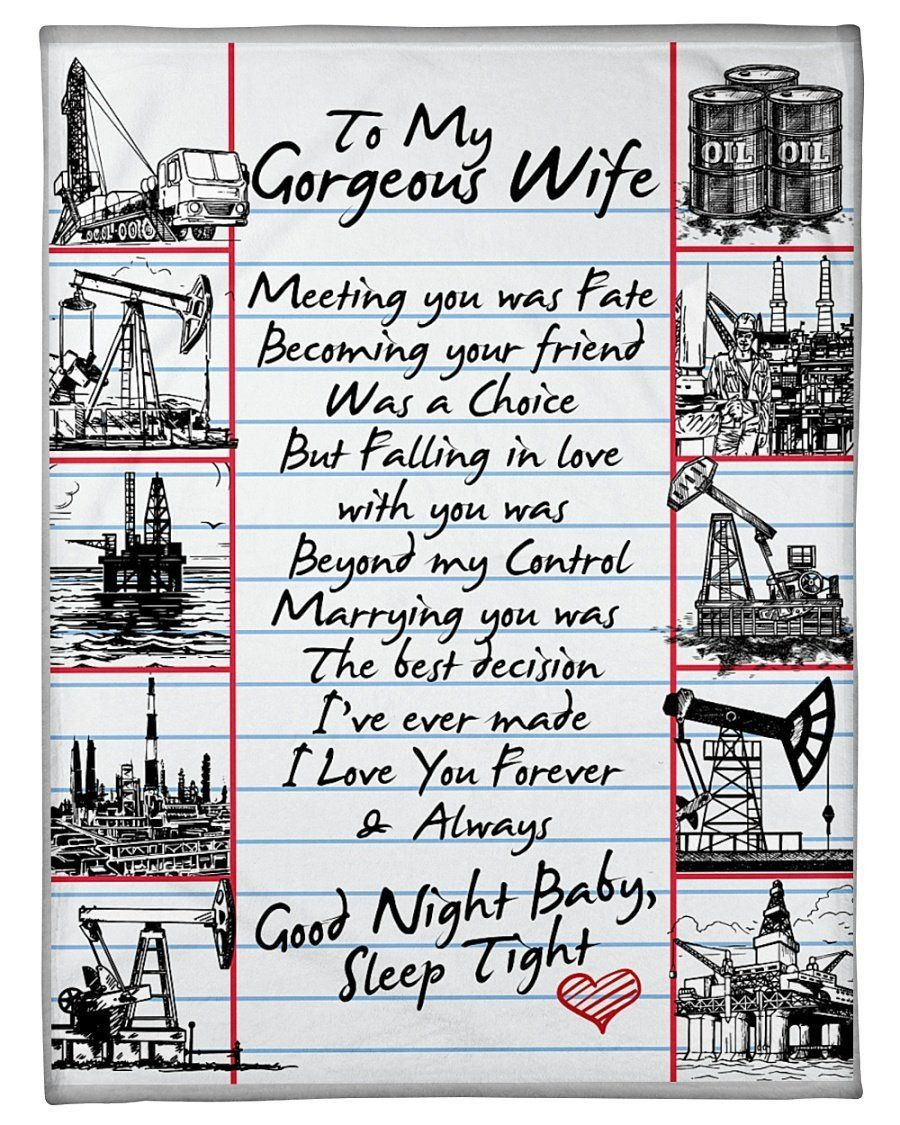 To My
Gorgeous Wife
OIL OIL
Meeting you was Fate
Becoming your friend
Was a Choice
But Falling in love
with you was
Beyond my Control
Marrying you was
The best decision
I've ever made
I Love You Forever
& Always
Good Night Baby,
Sleep Tight